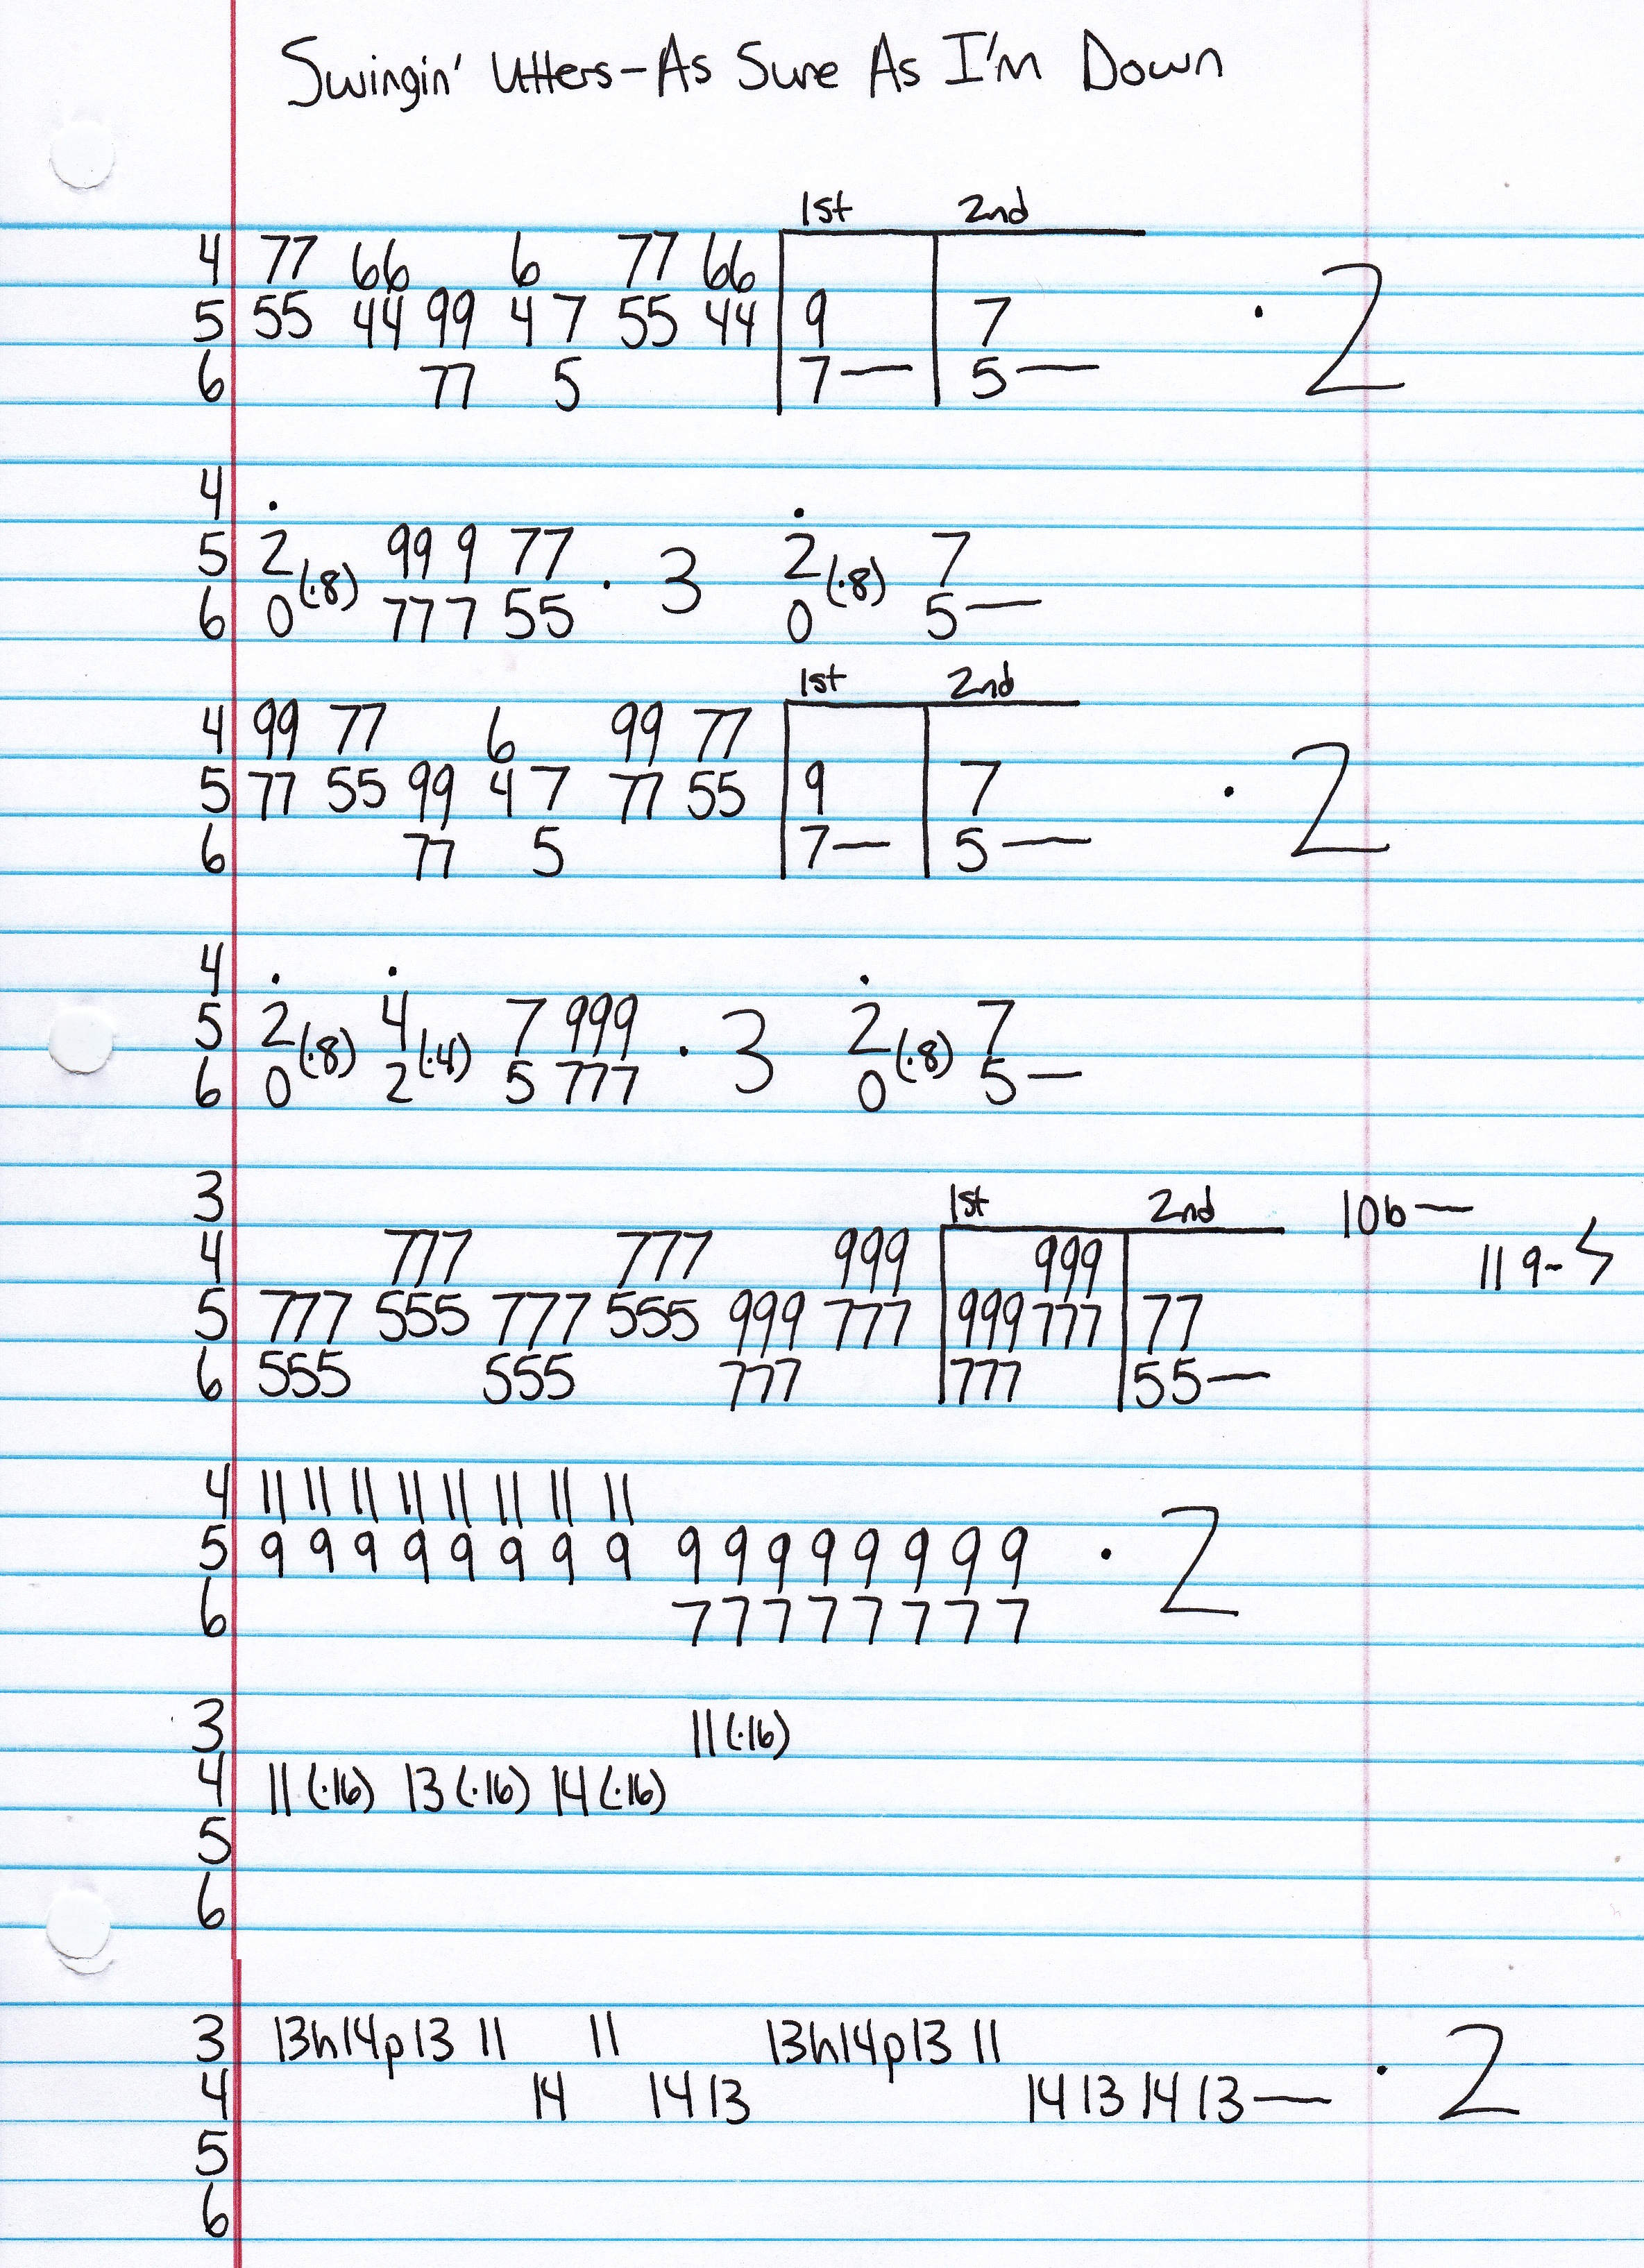 Swingin' Utters-As Sure As I'm Down
1st 2nd
4 77 66 6 77 66
5 55 44 99 4 7 55 44 9 7 · 2
6 77 5 7— 5—
4 · ·
5 2 (·8) 99 9 77 · 3 2 (·8) 7
6 0 77 7 55 0 5—
1st 2nd
4 99 77 6 99 77
5 77 55 99 4 7 77 55 9 7 · 2
6 77 5 7— 5—
4 · · ·
5 2 (·8) 4 (·4) 7 999 · 3 2 (·8) 7
6 0 2 5 777 0 5—
3 1st 2nd 10b—
4 777 777 999 999 11 9~
5 777 555 777 555 999 777 999 777 77
6 555 555 777 777 55—
4 11 11 11 11 11 11 11 11
5 9 9 9 9 9 9 9 9 9 9 9 9 9 9 9 9 · 2
6 7 7 7 7 7 7 7 7
3 11 (·16)
4 11 (·16) 13 (·16) 14 (·16)
5
6
3 13h14p13 11 11 13h14p13 11 · 2
4 14 14 13 14 13 14 13—
5
6